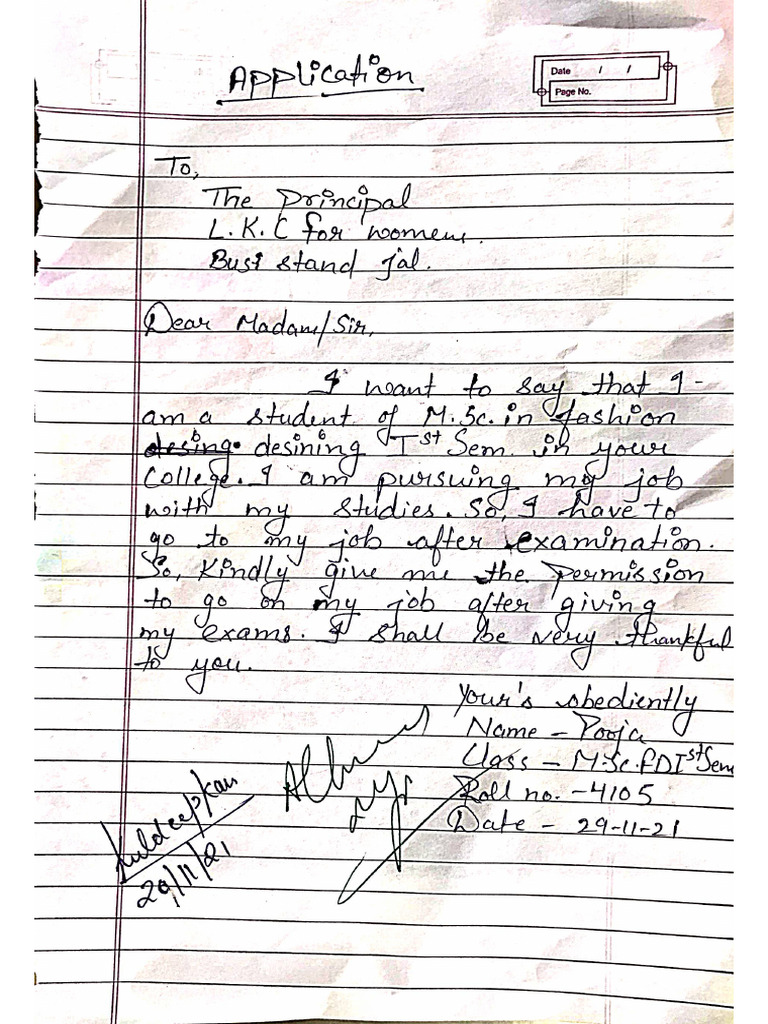 Application
Date / /
Page No.
To,
The principal
L.K.C for womens.
Bus stand jal.
Dear Madam/Sir,
I want to say that I
am a student of M.Sc. in fashion
desing. desining Ist Sem. in your
College. I am pursuing my job
with my studies. So, I have to
go to my job after examination.
So, Kindly give me the permission
to go on my job after giving
my exams. I shall be very thankful
to you.
Your's obediently
Name - Pooja
Class - M.Sc. FD Ist Sem
Roll no. - 4105
Date - 29-11-21
Kuldeep Kaur
29/11/21